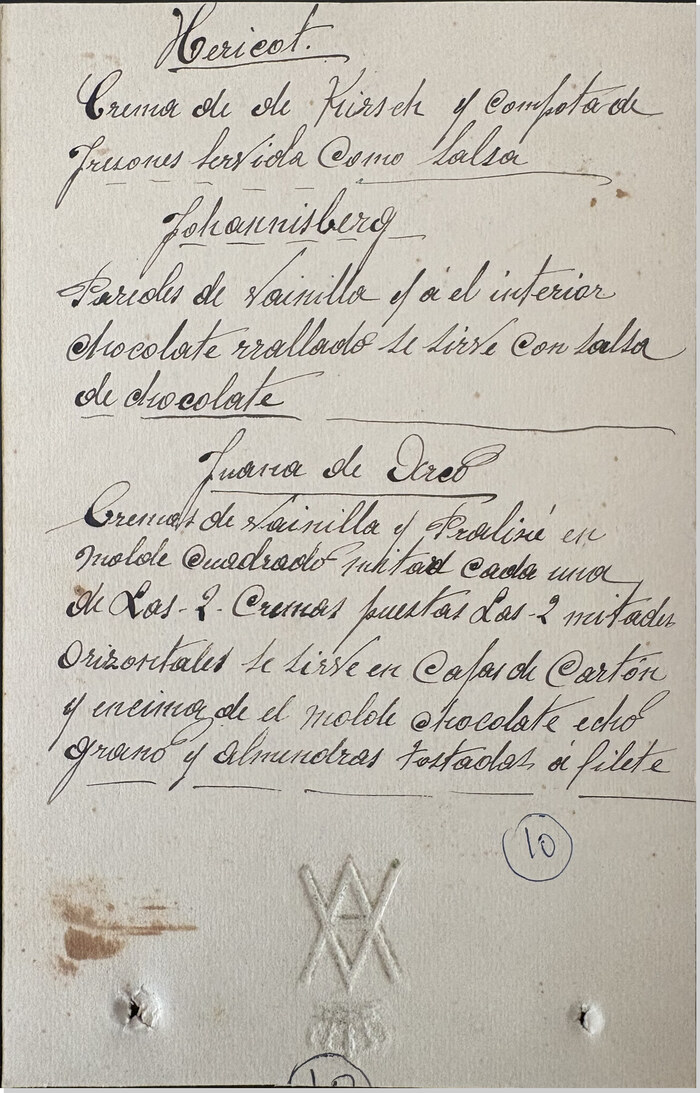 Hericot.
Crema de de Kirsch y compota de
Fresones servida Como salsa
Johannisberg
Paredes de vainilla y á el interior
chocolate rrallado se sirve con salsa
de chocolate
Juana de Arco
Cremas de vainilla y Praliné en
molde cuadrado mitad cada una
de Las-2-Cremas puestas Las-2 mitades
Orizontales se sirve en Cajas de Cartón
y encima de el molde chocolate echo
grano y almendras tostadas á filete
10
10